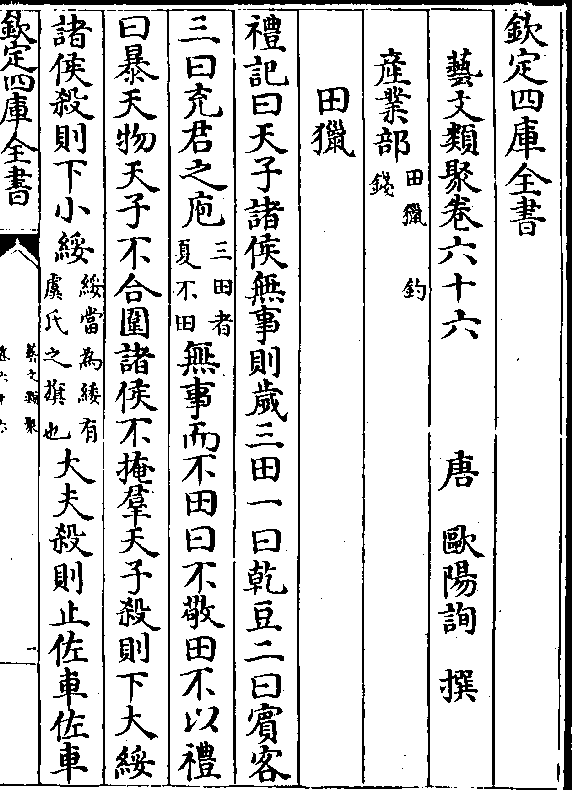 欽定四庫全書
藝文類聚卷六十六　唐　歐陽詢　撰
產業部 田獵　釣
錢
田獵
禮記曰天子諸侯無事則歲三田一曰乾豆二曰賓客
三曰充君之庖 三田者
夏不田 無事而不田曰不敬田不以禮
曰暴天物天子不合圍諸侯不掩羣天子殺則下大綏
諸侯殺則下小綏 綏當為緌有
虞氏之旗也 大夫殺則止佐車佐車
欽定四庫全書
藝文類聚
卷六十六
一